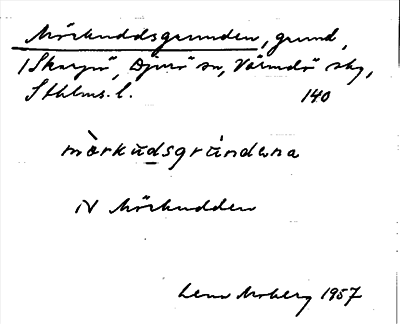 Mörkuddsgrunden, grund,
/Skarpö, Djurö sn, Värmdö skg,
Sthlms. l. 140
mòrkudsgrúndena
N Mörkudden
Lena Moberg 1957